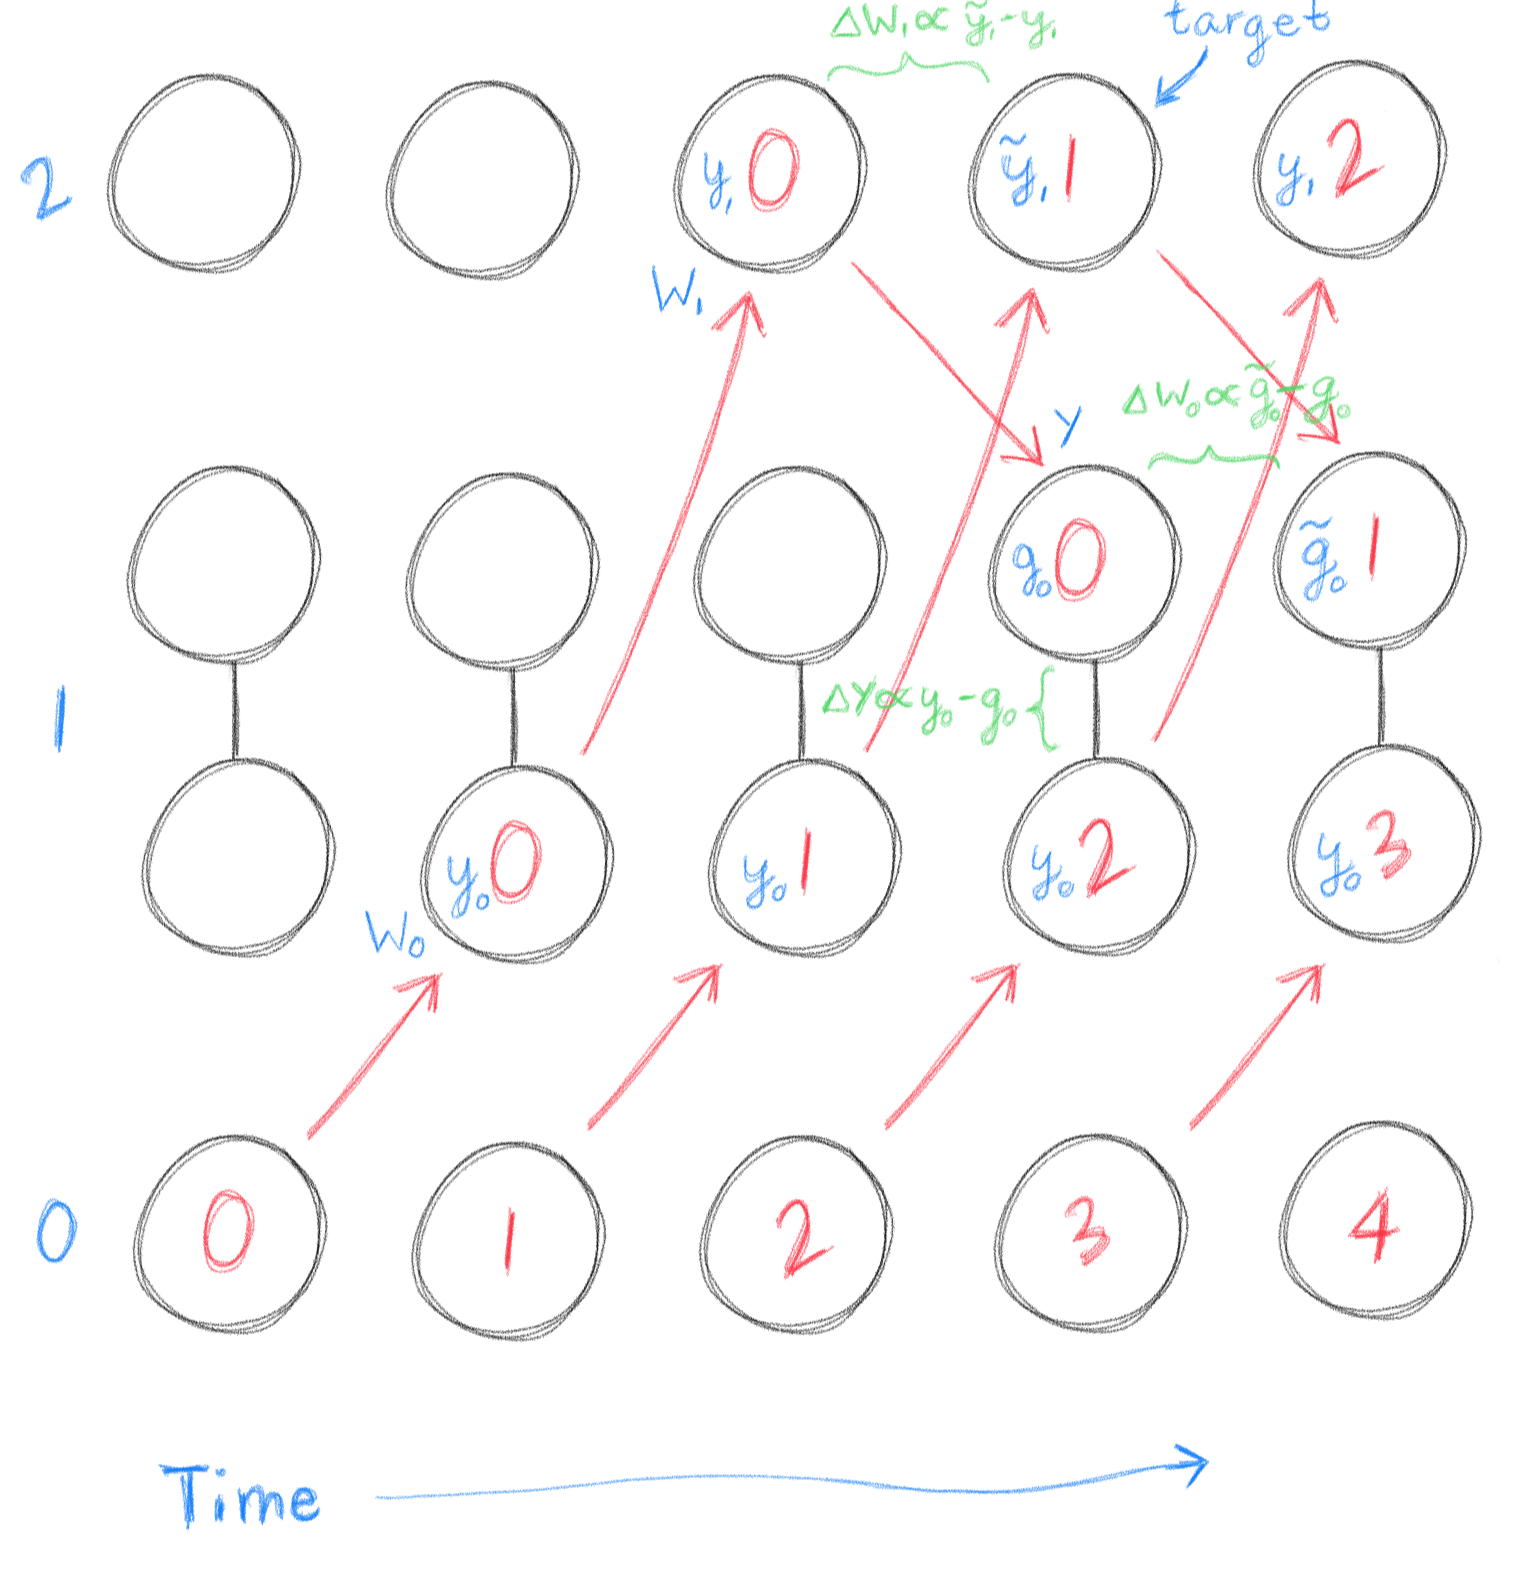 ΔW₁ ∝ ỹ₁ - y₁
target
2
y₁ 0
ỹ₁ 1
y₁ 2
W₁
ΔW₀ ∝ g̃₀ - g₀
Y
g₀ 0
g̃₀ 1
1
ΔY ∝ y₀ - g₀
y₀ 0
y₀ 1
y₀ 2
y₀ 3
W₀
0
0
1
2
3
4
Time